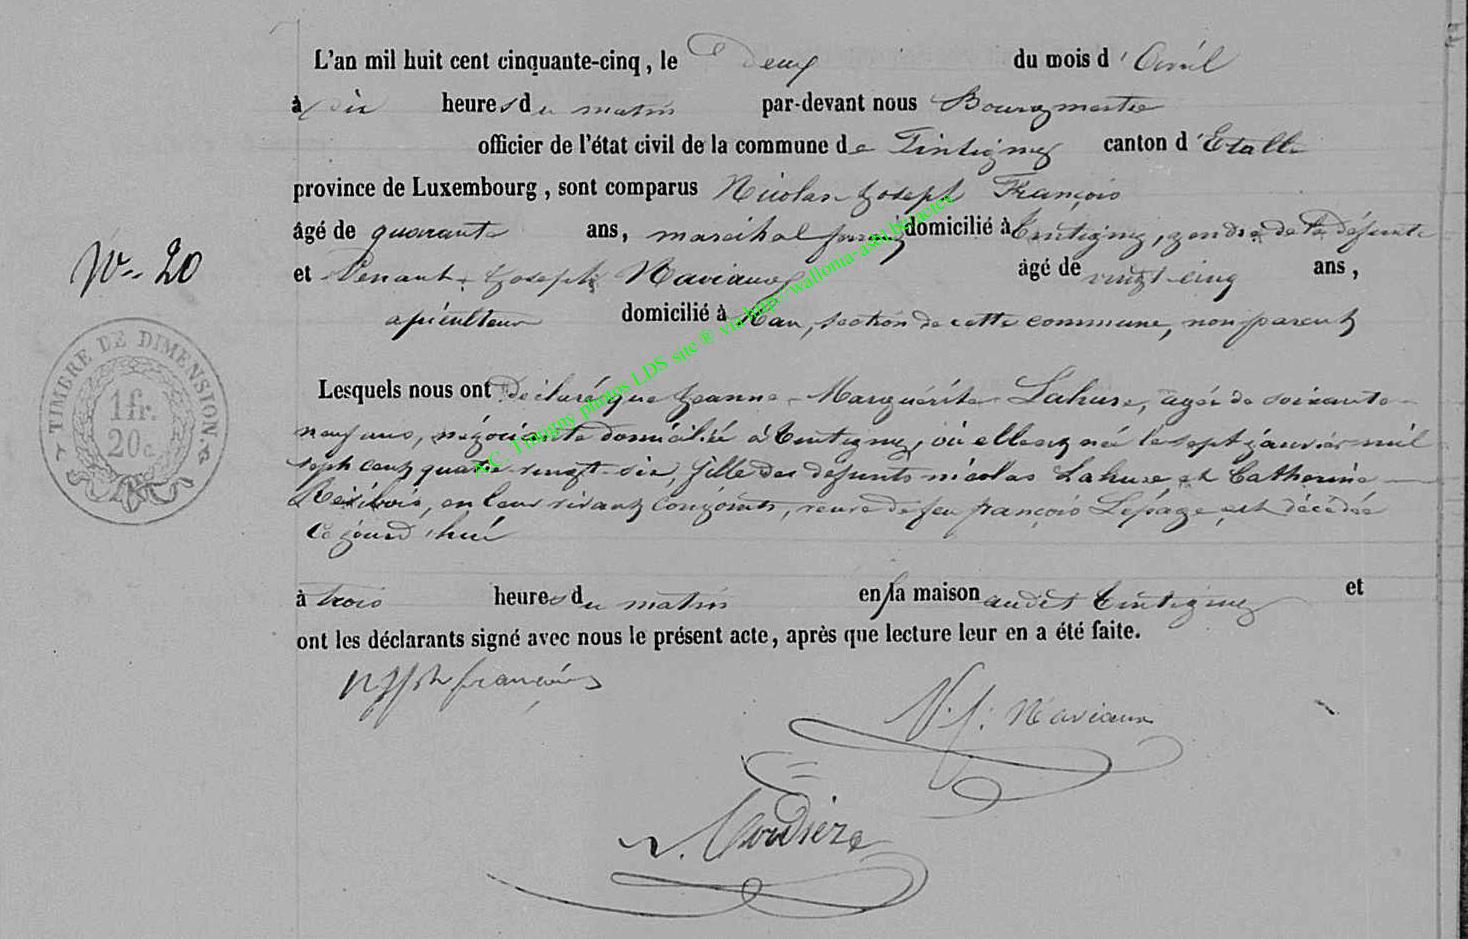 L'an mil huit cent cinquante-cinq, le Deux du mois d'Avril
à dix heures du matin par-devant nous Bourgmestre
officier de l'état civil de la commune de Tintigny canton d'Etalle
province de Luxembourg, sont comparus Nicolas Joseph François
âgé de quarante ans, maréchal domicilié à Tintigny, gendre de la défunte
et Joseph Naviaux âgé de vingt-cinq ans,
N°. 20
domicilié à Han, section de cette commune, non parents
TIMBRE DE DIMENSION.
1 fr.
20 c.
Lesquels nous ont déclaré que Jeanne Marguérite Lahure, âgée de soixante
neuf ans, négociante domiciliée à Tintigny, où elle est née le sept janvier mil
sept cent quatre-vingt-six, fille des défunts nicolas Lahure et Catherine
en leur vivant conjoints, veuve de feu françois Lépage, est décédée
ce jourd'hui
à trois heures du matin en sa maison audit Tintigny et
ont les déclarants signé avec nous le présent acte, après que lecture leur en a été faite.
françois
V. J. Naviaux
A.C. Tintigny photos LDS site ® via http://wallonia-asbl.be/actes